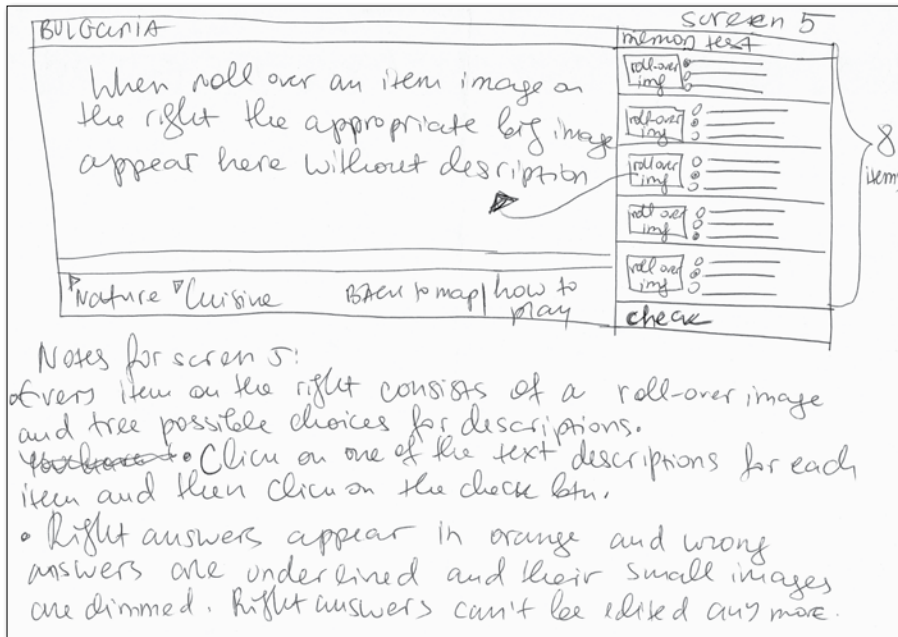 screen 5
BULGARIA
When roll over an item image on
the right the appropriate big image
appear here without description
memory test
roll-over
img
roll-over
img
roll over
img
roll over
img
roll over
img
8
items
Nature Cuisine BACK to map | how to
play
check
Notes for screen 5:
• Every item on the right consists of a roll-over image
and tree possible choices for descriptions.
• Click on one of the text descriptions for each
item and then click on the check btn.
• Right answers appear in orange and wrong
answers are underlined and their small images
are dimmed. Right answers can't be edited any more.